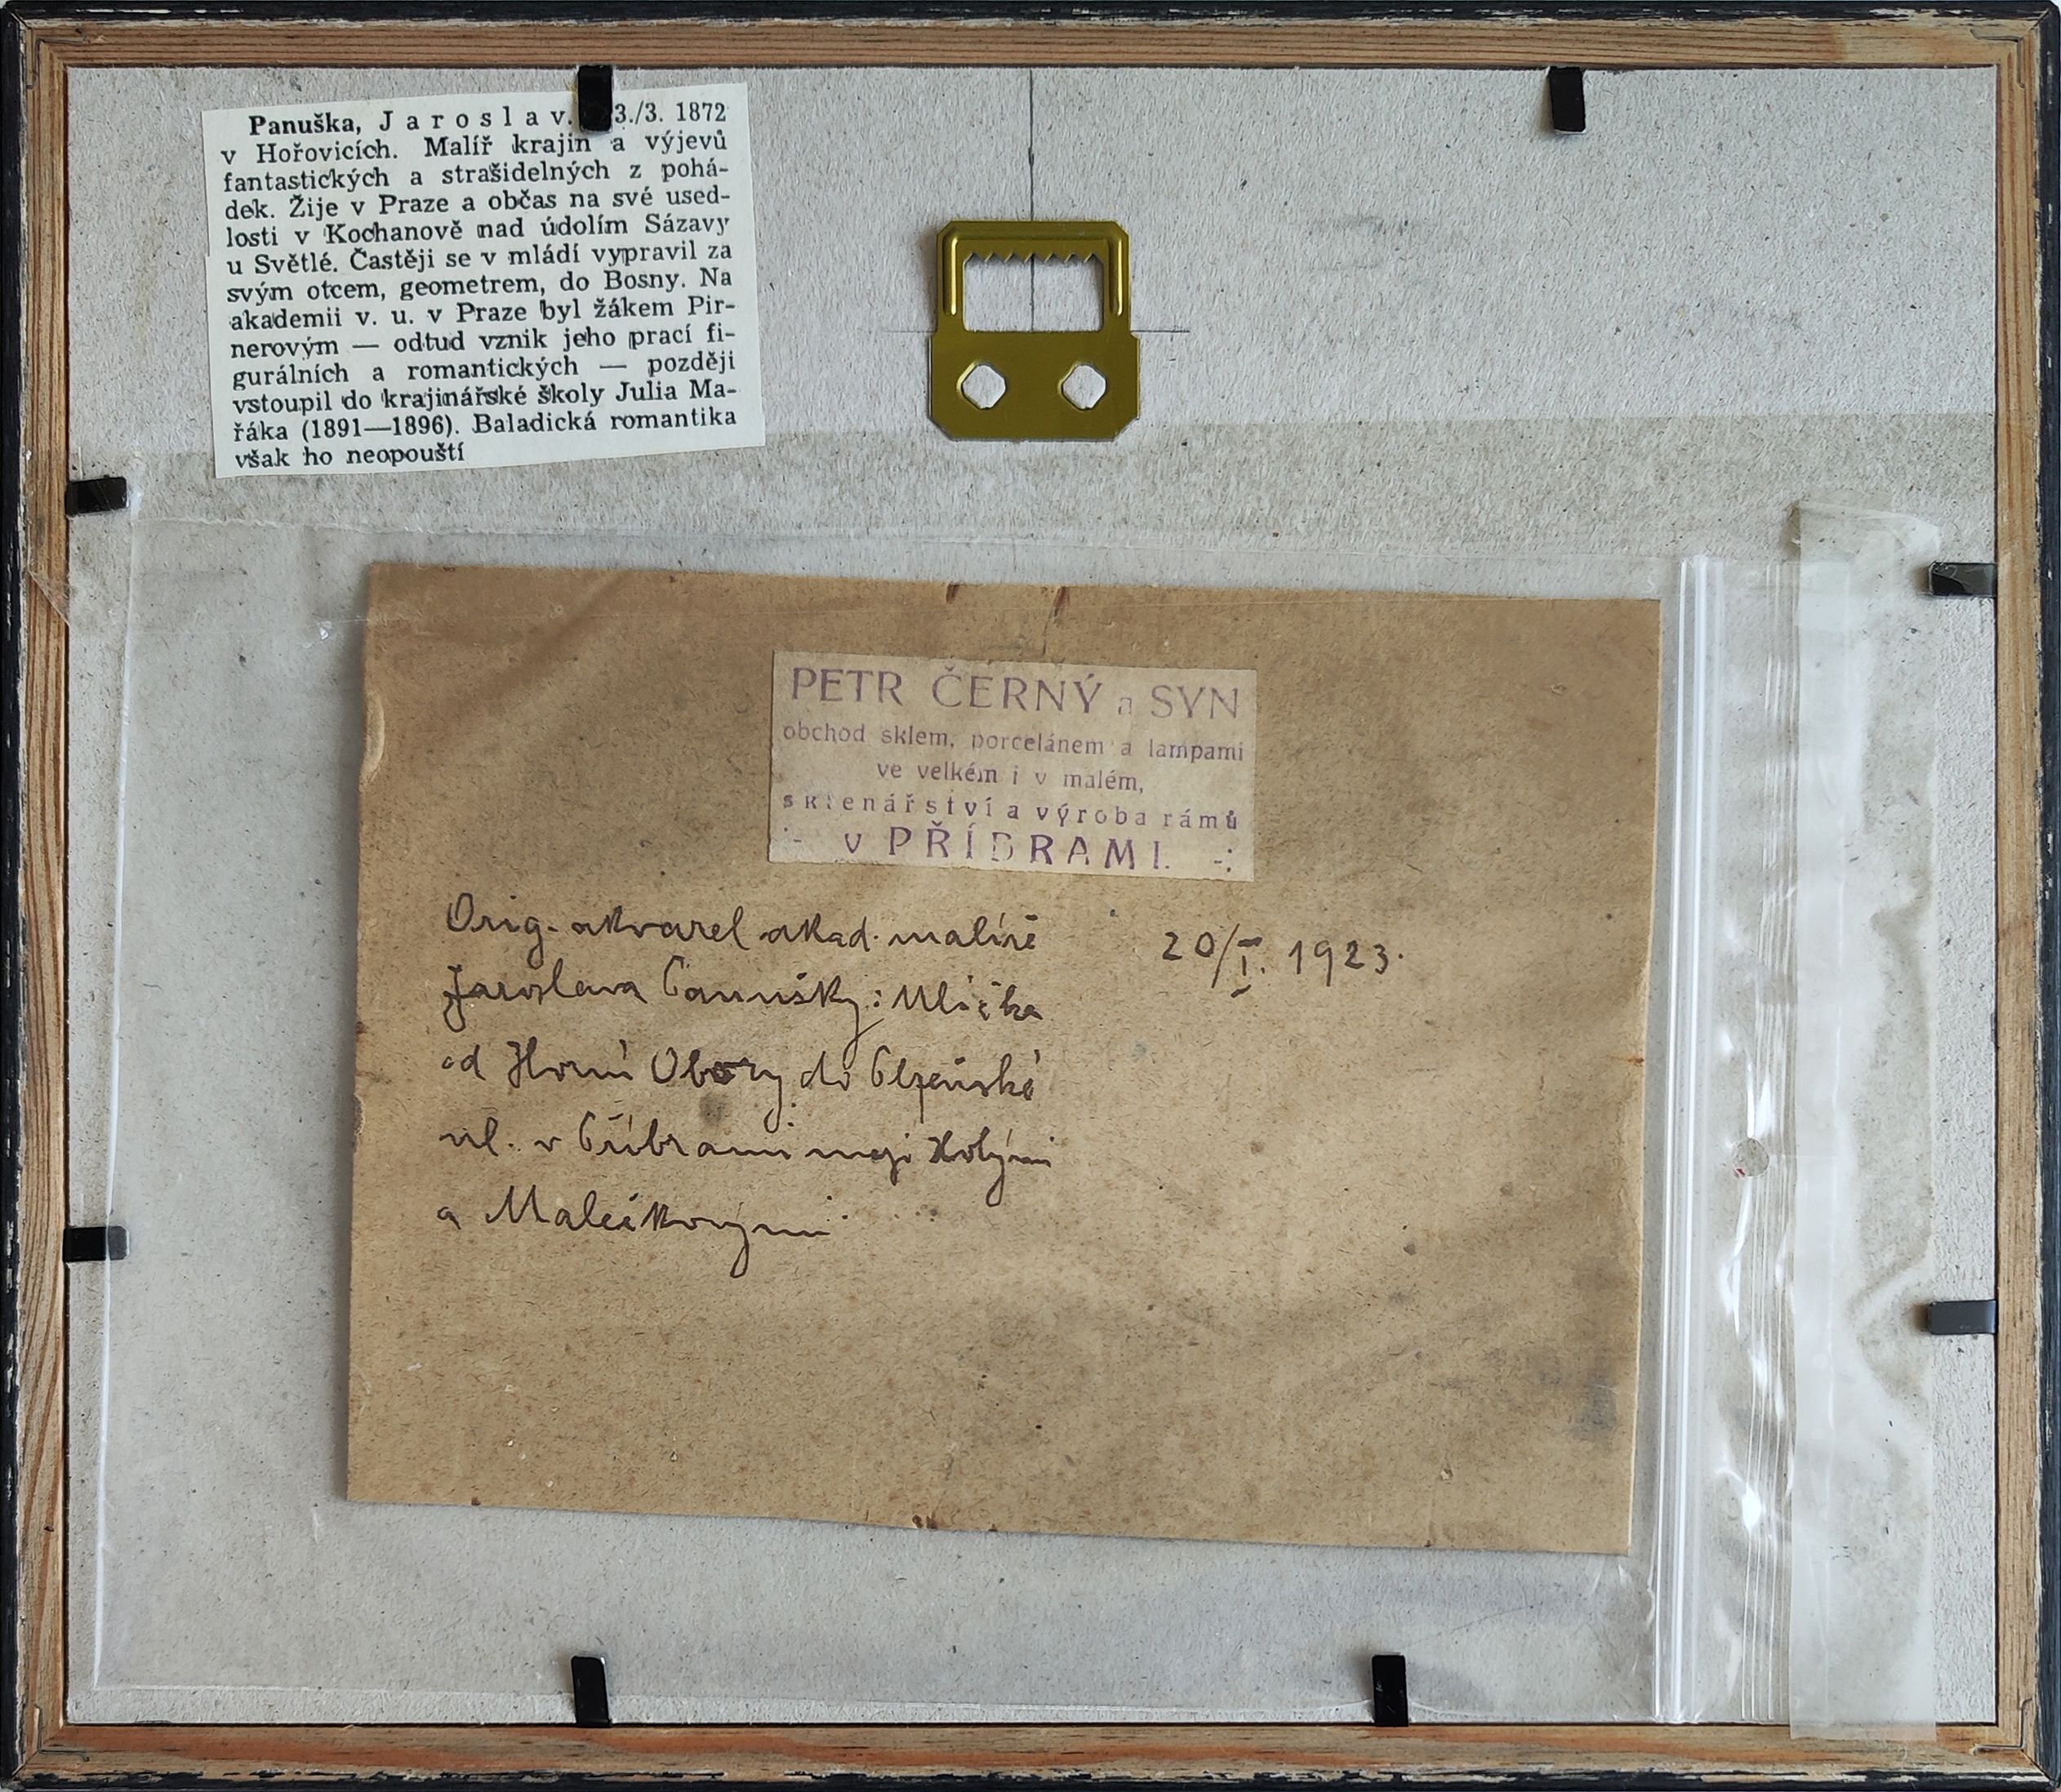 Panuška, Jaroslav. 3./3. 1872
v Hořovicích. Malíř krajin a výjevů
fantastických a strašidelných z pohá-
dek. Žije v Praze a občas na své used-
losti v Kochanově nad údolím Sázavy
u Světlé. Častěji se v mládí vypravil za
svým otcem, geometrem, do Bosny. Na
akademii v. u. v Praze byl žákem Pir-
nerovým — odtud vznik jeho prací fi-
gurálních a romantických — později
vstoupil do krajinářské školy Julia Ma-
řáka (1891—1896). Baladická romantika
však ho neopouští
PETR ČERNÝ a SYN
obchod sklem, porcelánem a lampami
ve velkém i v malém,
sklenářství a výroba rámů
:- v PŘÍBRAMI. -:
Orig. akvarel akad. malíře
Jaroslava Panušky: Ulička
od Horní Obory do Plzeňské
ul. v Příbrami mezi
a
20/I. 1923.